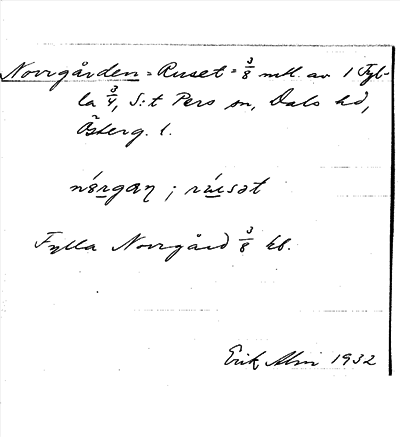 Norrgården = Ruset = 3/8 mtl. av 1 Fyl-
la 3/4, S:t Pers sn, Dals hd,
Österg. l.
nǿrgan ; rúsət
Fylla Norrgård 3/8 hd.
Erik Alm 1932